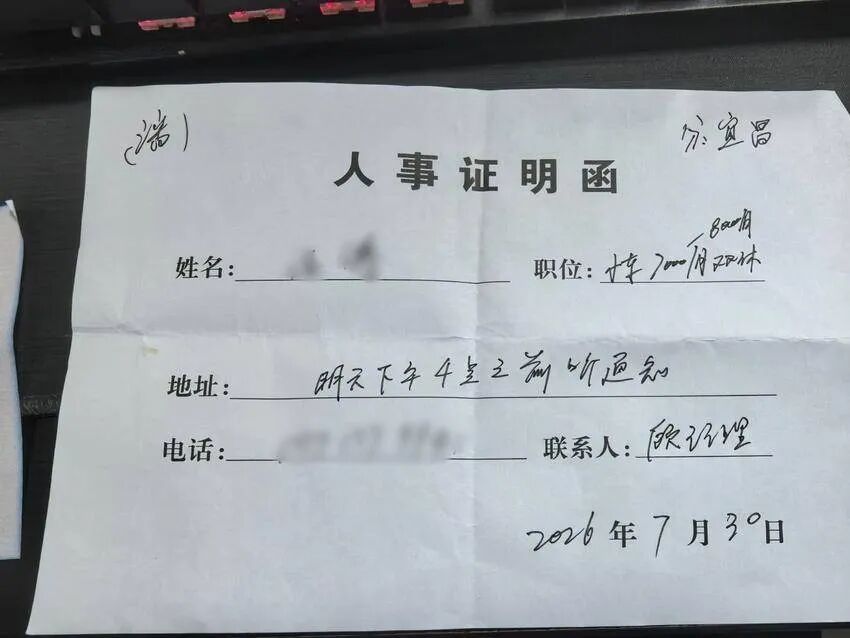 (瑞)
分:宜昌
人事证明函
姓名:
职位: 小车 7000/月双休
8000/月
地址: 明天下午4点之前听通知
电话:
联系人: 欧经理
2026年7月30日